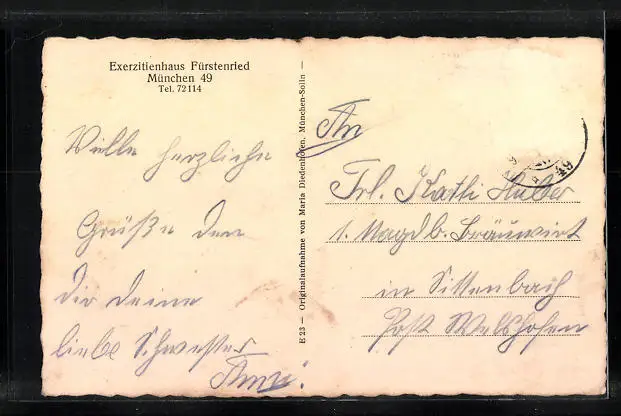 Exerzitienhaus Fürstenried
München 49
Tel. 72114
Viele herzliche
Grüße von
Dir Deine
liebe Schwester
Anni.
E 23 — Originalaufnahme von Maria Diedenhofen, München-Solln —
An
Frl. Kathi Huber
b. Bräuwirt
in Sittenbach
Post
49